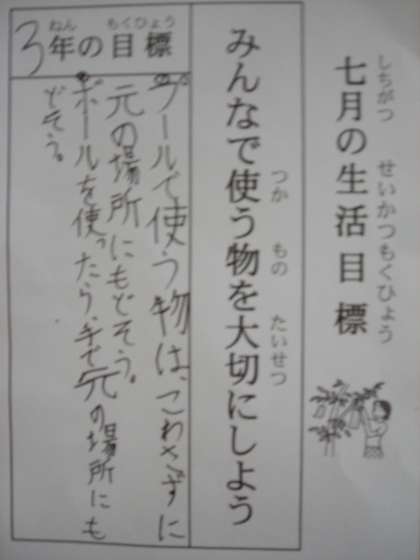 七月の生活目標
しちがつ せいかつもくひょう
みんなで使う物を大切にしよう
つか もの たいせつ
3年の目標
ねん もくひょう
プールで使う物は、こわさずに
元の場所にもどそう。
ボールを使ったら、手で元の場所にも
どそう。